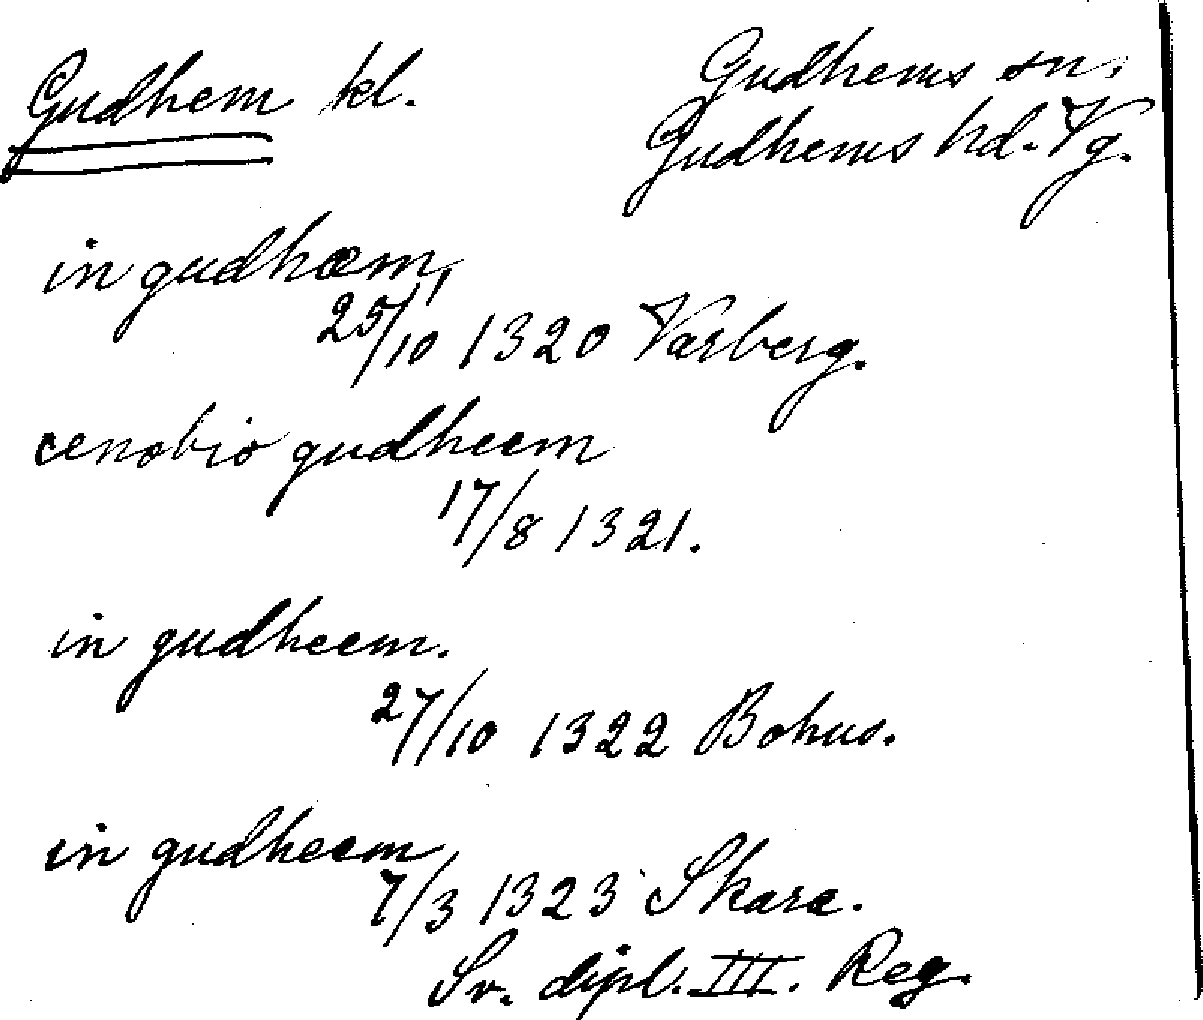 Gudhem kl.
Gudhems sn.
Gudhems hd. Vg.
in gudhæm,
25/10 1320 Varberg.
cenobio gudheem
17/8 1321.
in gudheem.
27/10 1322 Bohus.
in gudheem
7/3 1323 Skara.
Sv. dipl. III. Reg.